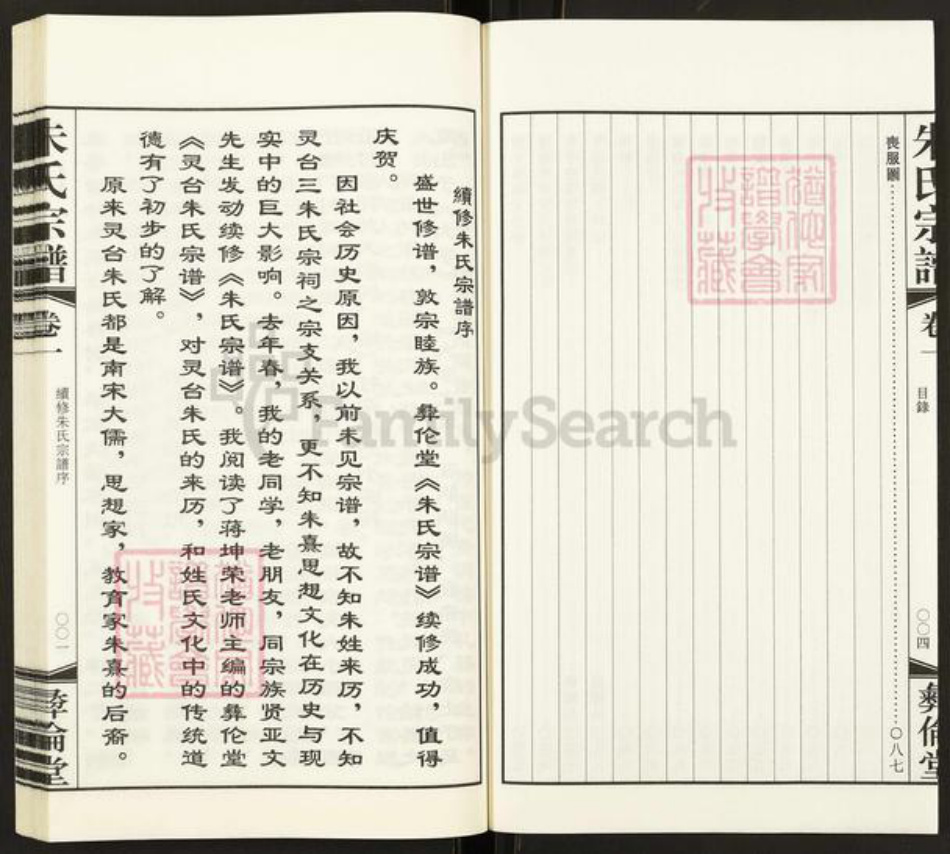 朱氏宗譜
卷一
目錄
〇〇四
彝倫堂
喪服圖……〇八七
猶他家
譜學會
收藏
續修朱氏宗譜序
盛世修谱，敦宗睦族。彝伦堂《朱氏宗谱》续修成功，值得
庆贺。
因社会历史原因，我以前未见宗谱，故不知朱姓来历，不知
灵台三朱氏宗祠之宗支关系，更不知朱熹思想文化在历史与现
实中的巨大影响。去年春，我的老同学，老朋友，同宗族贤亚文
先生发动续修《朱氏宗谱》。我阅读了蒋坤荣老师主编的彝伦堂
《灵台朱氏宗谱》，对灵台朱氏的来历，和姓氏文化中的传统道
德有了初步的了解。
原来灵台朱氏都是南宋大儒，思想家，教育家朱熹的后裔。
猶他家
譜學會
收藏
朱氏宗譜
卷一
續修朱氏宗譜序
〇〇一
彝倫堂
FamilySearch